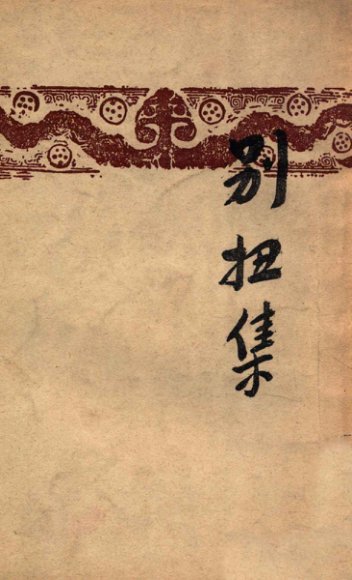 别扭集